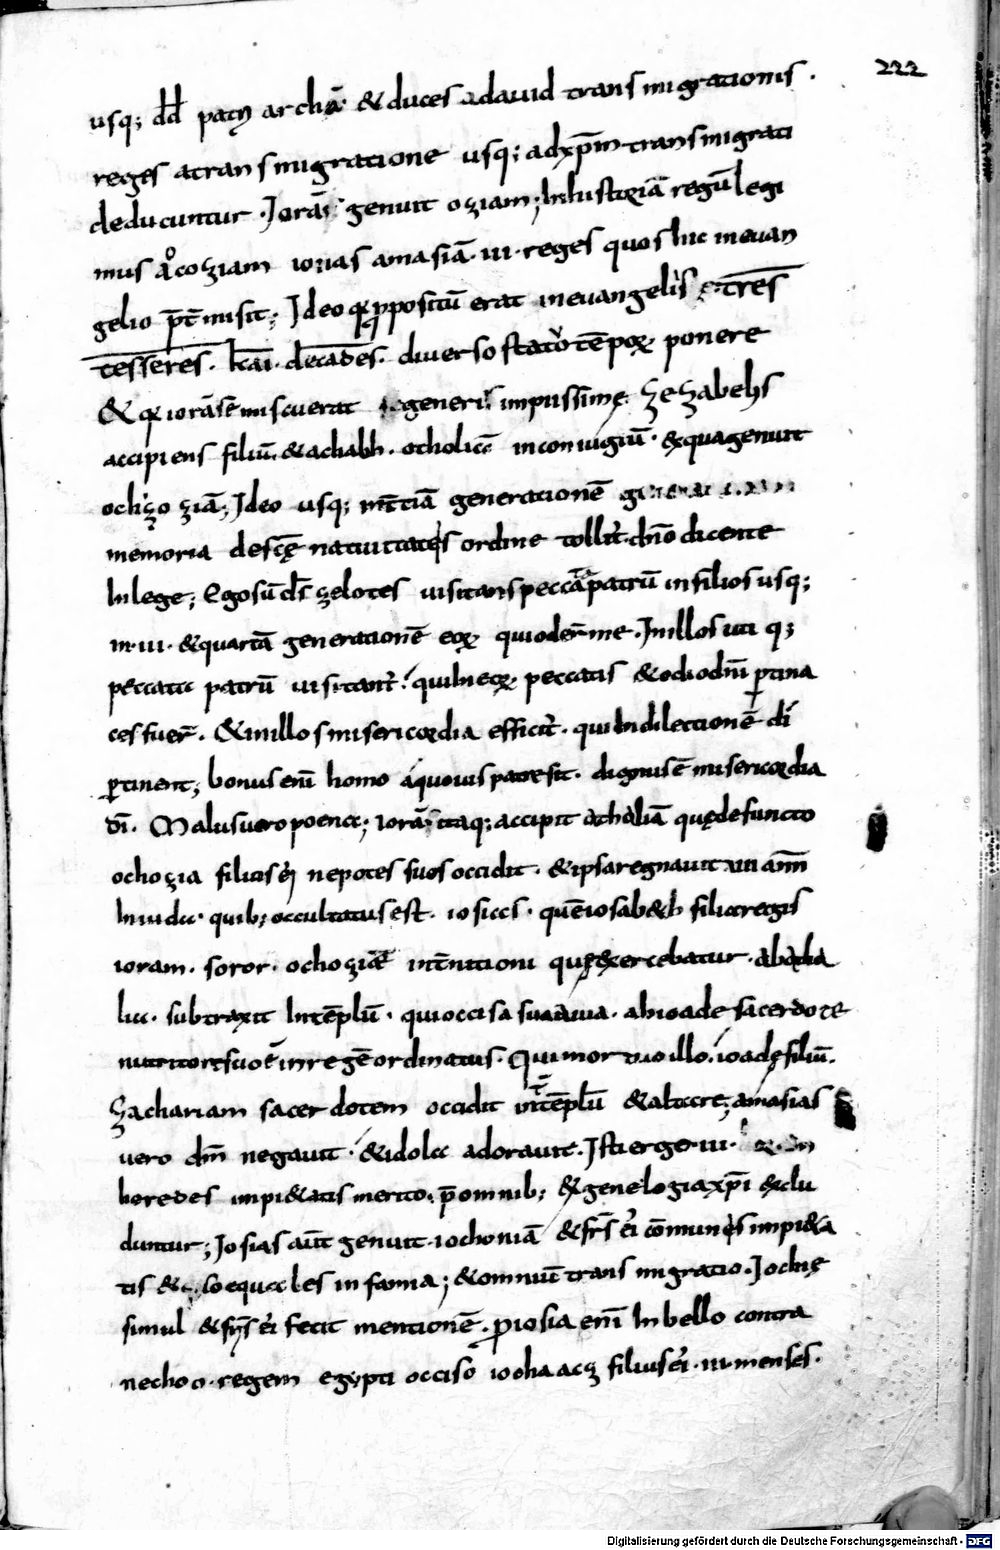 222
usq; dd̄ patri archā & duces a dauid transmigrationis.
reges atransmigratione usq; adxp̄m transmigrati
deducuntur. Iorā genuit oziam; Inhistoriā regū legi
mus ochoziam ioras amasiā. iii. reges quos hic ineuan
gelio p̄t misit; Ideo propositū erat ineuangeliis tres
tesseres. kai. decades. diuerso statū tēpoꝝ ponere
& iorā se miscuerat generi impiissimę zezabelis
accipiens filiū & achabh. otholiē inconiugiū. exquagenuit
ochozoziā; Ideo usq; intr̄tiā generationē
memoria descę natiuitatis ordine tollit. dn̄o dicente
Inlege; Egosū dr̄s zelotes uisitans peccata patrū infilios usq;
in. iii. & quartā generationē eoꝝ quioder̄ me. Inillos uti q;
peccata patrū uisitant̄. quiIneoꝝ. peccatis & odiodn̄i ꝑtina
ces fuer̄. & inillos misericordia efficit̄. quiIndilectionē dī
ꝑtinent; bonus enī homo aquouis patresit. dignus ē misericordia
dī. Malus uero poena; iorā itaq; accipit athaliā quędefuncto
ochozia filius ei nepotes suos occidit. & ipsa regnauit uii ann̄
Iniuda. quib; occultatus est. ioas. quē iosabeth filia regis
ioram. soror. ochozię intēnitioni quę exercebatur. ab athalia
lic. subtraxit Intēplū. quioccisa suaauia. abioade sacerdote
nutritore suo ē inregē ordinatus. Qui mortuo illo. ioadę filiū.
Zachariam sacerdotem occidit int̄ tēplū & altare; amasias
uero dm̄ negauit. & idola adorauit. Isti ergo iii.
heredes impietatis merito. p̄ omnib; exgenelogia xp̄i exclu
duntur; Iosias aūt genuit. iochoniā & fr̄s ei cōmunis impieta
tis & coequales infamia; & omniū transmigratio. Iochię
simul & fr̄s ei fecit mentionē. pro iosia enī Inbello contra
nechoo. regem egypti occiso iooha acz filius ei. iii. menses.
Digitalisierung gefördert durch die Deutsche Forschungsgemeinschaft - DFG